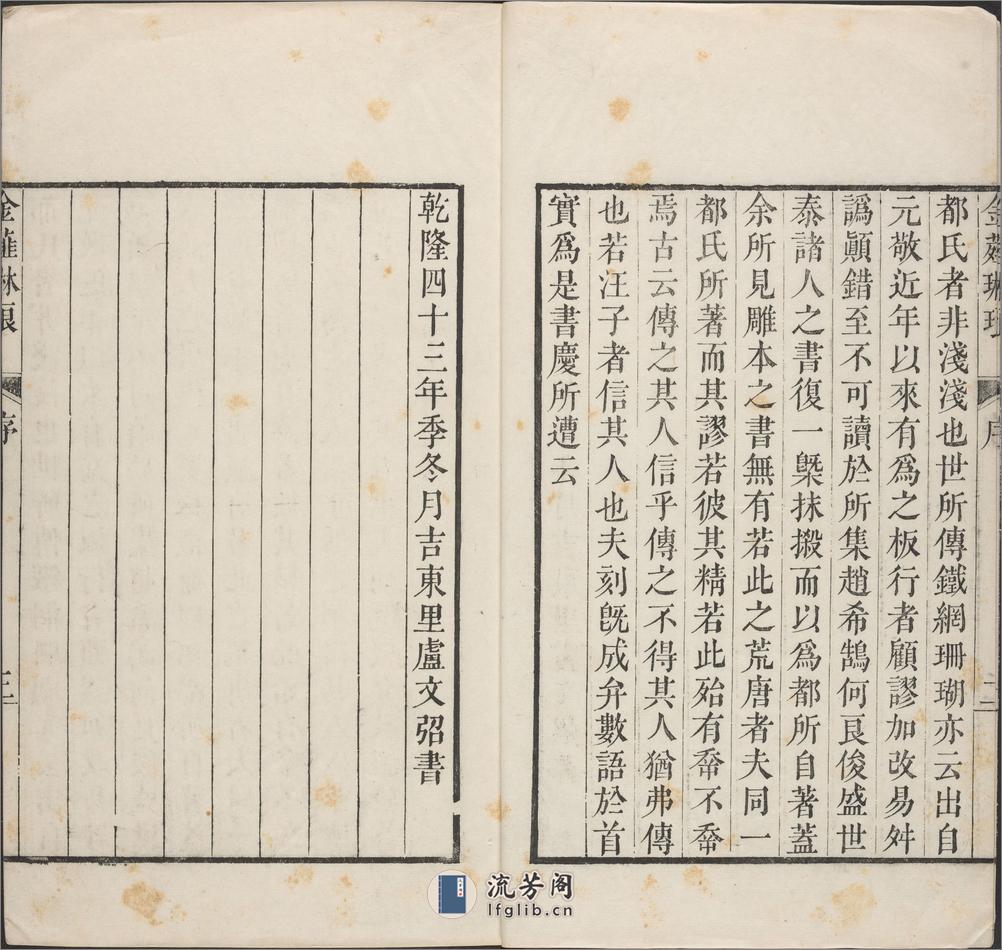 金薤琳琅
序
二
都氏者非淺淺也世所傳鐵網珊瑚亦云出自
元敬近年以來有爲之板行者顧謬加改易舛
譌顚錯至不可讀於所集趙希鵠何良俊盛世
泰諸人之書復一槩抹摋而以爲都所自著蓋
余所見雕本之書無有若此之荒唐者夫同一
都氏所著而其謬若彼其精若此殆有𢁉不𢁉
焉古云傳之其人信乎傳之不得其人猶弗傳
也若汪子者信其人也夫刻旣成弁數語於首
實爲是書慶所遭云
乾隆四十三年季冬月吉東里盧文弨書
金薤琳琅
序
三
流芳阁
lfglib.cn